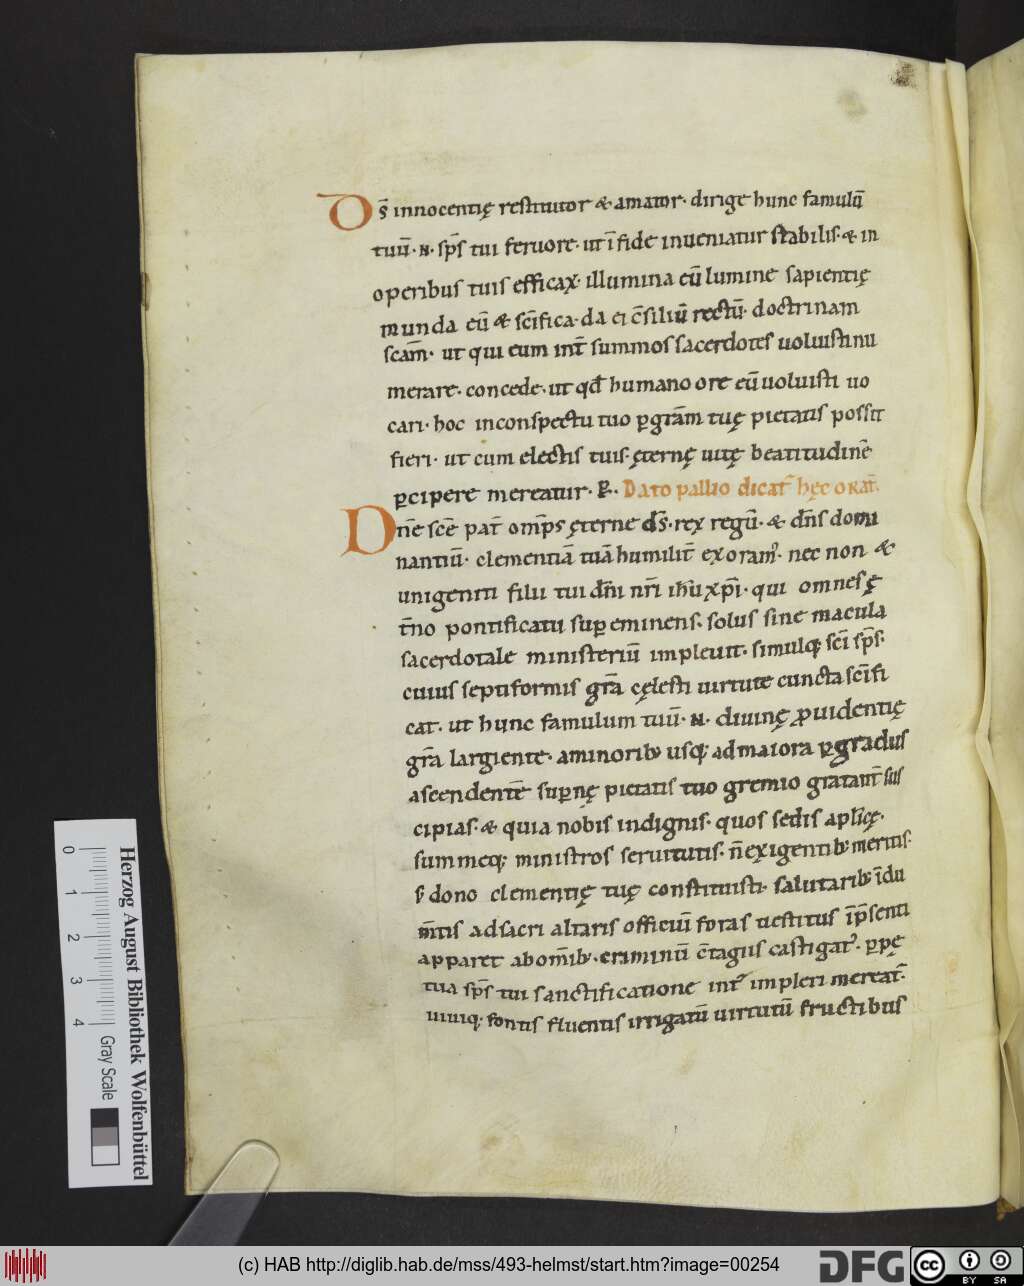 Ds̄ innocentię restitutor & amator· dirige hunc famulū
tuū·N· sp̄s tui feruore· ut ī fide inueniatur stabilis· & in
operibus tuis efficax· illumina eū lumine sapientię
munda eū & sc̄ifica· da ei c̄siliū rectū· doctrinam
scām· ut qui eum int̄ summos sacerdotes uoluisti nu
merare· concede· ut qd̄ humano ore eū uoluisti uo
cari· hoc inconspectu tuo ꝑgrām tuę pietatis possit
fieri· ut cum electis tuis· ęternę uitę beatitudinē
ꝑcipere mereatur· ꝑ· Dato pallio dicat̄ hęc orat̄·
Dn̄e scē pat̄ omp̄s ęterne ds̄· rex regū· & dn̄s domi
nantiū· clementiā tuā humilit̄ exoram᷒· nec non &
unigeniti filii tui dn̄i nr̄i ih̄u xp̄i· qui omnes ę
t̄no pontificatu suꝑeminens· solus sine macula
sacerdotale ministeriū impleuit· simulq; sc̄i sp̄s·
cuius septiformis grā cęlesti uirtute cuncta sc̄ifi
cat· ut hunc famulum tuū·N· diuinę ꝓuidentię
grā largiente· aminorib; usq; admaiora ꝑgradus
ascendentē suꝑnę pietatis tuo gremio gratant̄ sus
cipias· & quia nobis indignis· quos sedis apl̄icę·
summeq; ministros seruitutis· n̄ exigentib; meritis·
s; dono clementię tuę constituisti· salutarib; īdu
m̄tis adsacri altaris officiū foras uestitus īp̄senti
apparet abom̄ib; criminū c̄tagiis castigat᷒· ꝑpę
tua sp̄s tui sanctificatione int᷒ impleri mereat̄·
uiuiq; fontis fluentis irrigatū uirtutū fructibus
0 1 2 3 4
Gray Scale
Herzog August Bibliothek Wolfenbüttel
(c) HAB http://diglib.hab.de/mss/493-helmst/start.htm?image=00254
DFG
cc BY SA